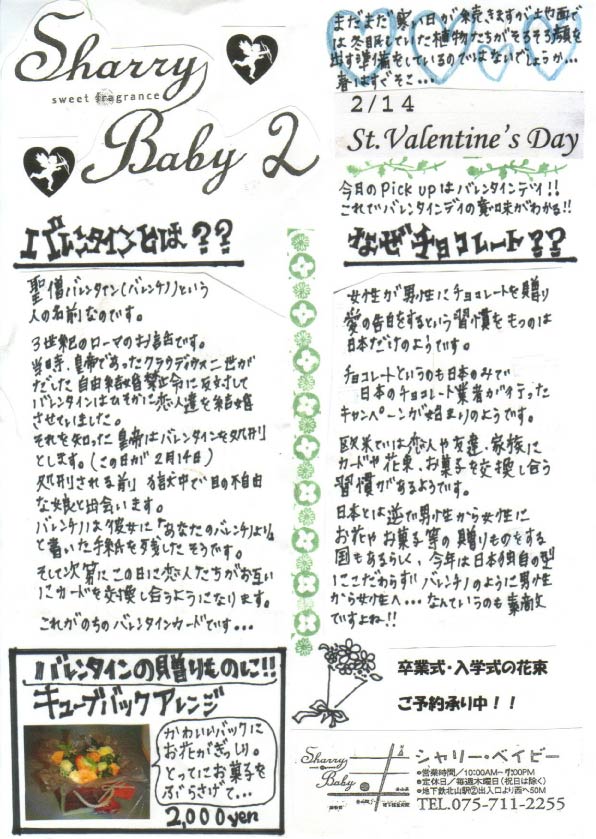 Sharry
sweet fragrance
Baby 2
まだまだ寒い日が続きますが地面で
は冬眠していた植物たちがそろそろ顔を
出す準備をしているのではないでしょうか…
春はすぐそこ…
2/14
St.Valentine's Day
今日のPick upはバレンタインデイ!!
これでバレンタインデイの意味がわかる!!
バレンタインとは??
聖僧バレンタイン(バレンチノ)という
人の名前なのです。
3世紀のローマのお話です。
当時、皇帝であったクラウディウス二世が
だした自由結婚禁止令に反対して
バレンタインはひそかに恋人達を結婚
させていました。
それを知った皇帝はバレンタインを処刑
とします。(この日が2月14日)
処刑される前、獄中で目の不自由
な娘と出会います。
バレンチノは彼女に「あなたのバレンチノより」
と書いた手紙を残したそうです。
そして次第にこの日に恋人たちがお互い
にカードを交換し合うようになります。
これがのちのバレンタインカードです…
なぜチョコレート??
女性が男性にチョコレートを贈り
愛の告白をするという習慣をもつのは
日本だけのようです。
チョコレートというのも日本のみで
日本のチョコレート業者が行った
キャンペーンが始まりのようです。
欧米では恋人や友達、家族に
カードや花束、お菓子を交換し合う
習慣があるようです。
日本とは逆で男性から女性に
お花やお菓子等の贈りものをする
国もあるらしく、今年は日本独自の型
にこだわらず"バレンチノのように男性
から女性へ…なんていうのも素敵
ですよね!!
バレンタインの贈りものに!!
キューブバックアレンジ
かわいいバックに
お花がぎっしり。
とってにお菓子を
ぶらさげて…
2,000yen
卒業式・入学式の花束
ご予約承り中!!
Sharry
Baby
シャリー・ベイビー
●営業時間/10:00AM-7:00PM
●定休日/毎週木曜日(祝日は除く)
●地下鉄北山駅②出入口より西へ50M
TEL.075-711-2255